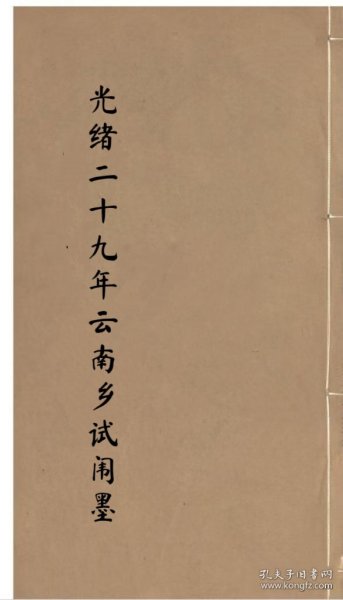 光绪二十九年云南乡试闱墨
孔夫子旧书网
www.kongfz.com